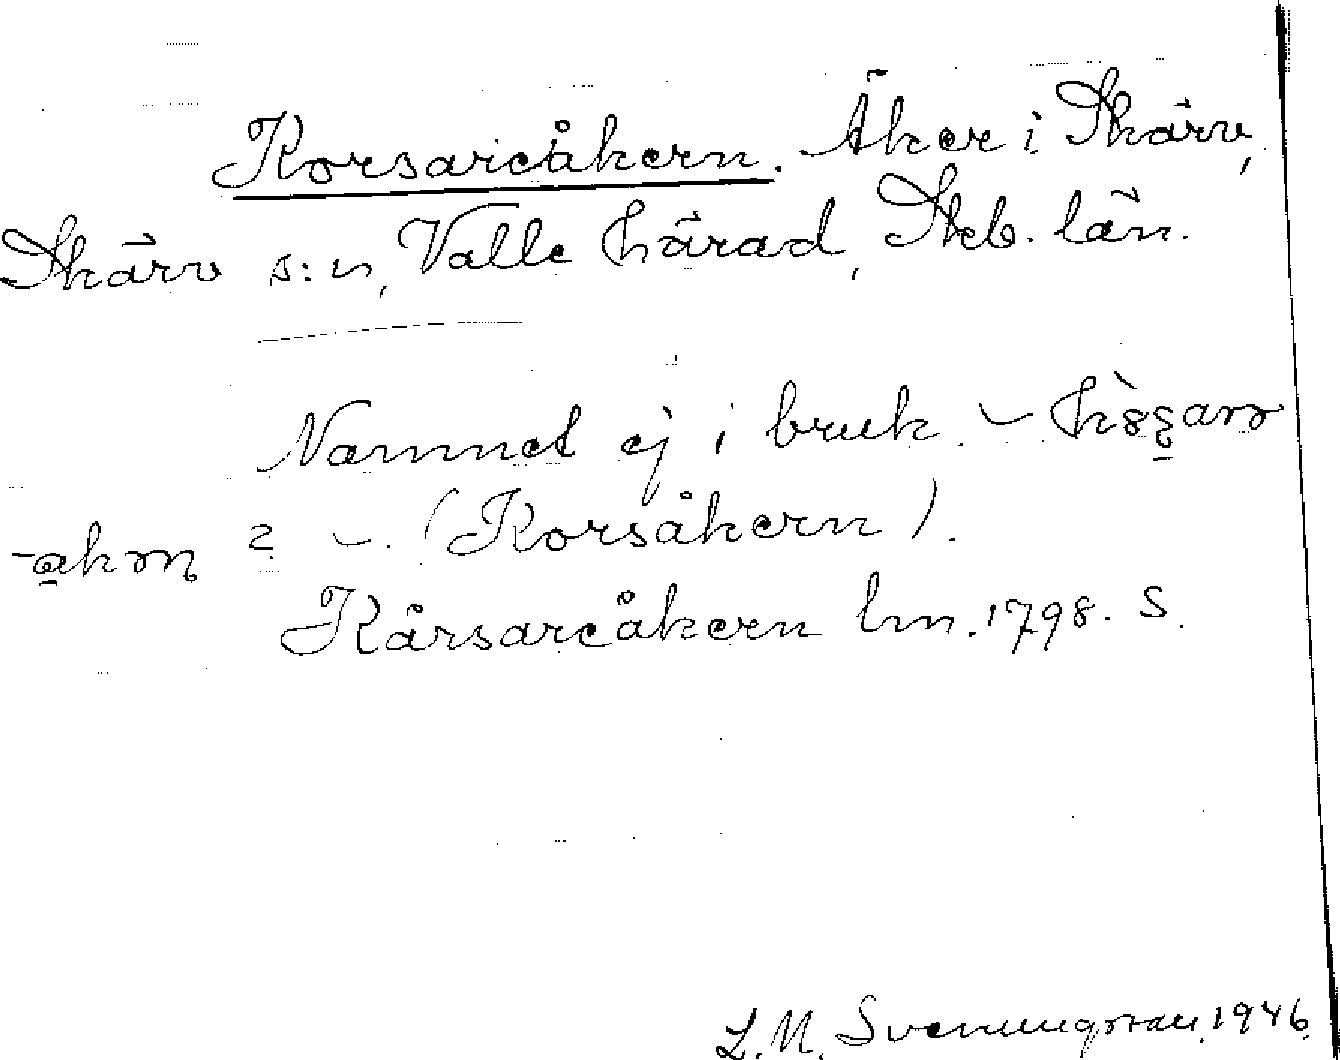 Korsareåkern. Åker i Skärv,
Skärv s:n, Valle härad, Skb. län.
Namnet ej i bruk. –
– (Korsåkern).
Kårsareåkern lm. 1798. S.
L.M. Svenungsson 1946